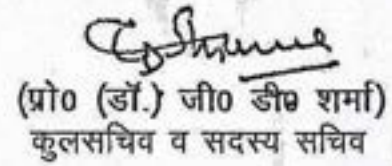 (प्रो0 (डॉ.) जी0 डी0 शर्मा)
कुलसचिव व सदस्य सचिव